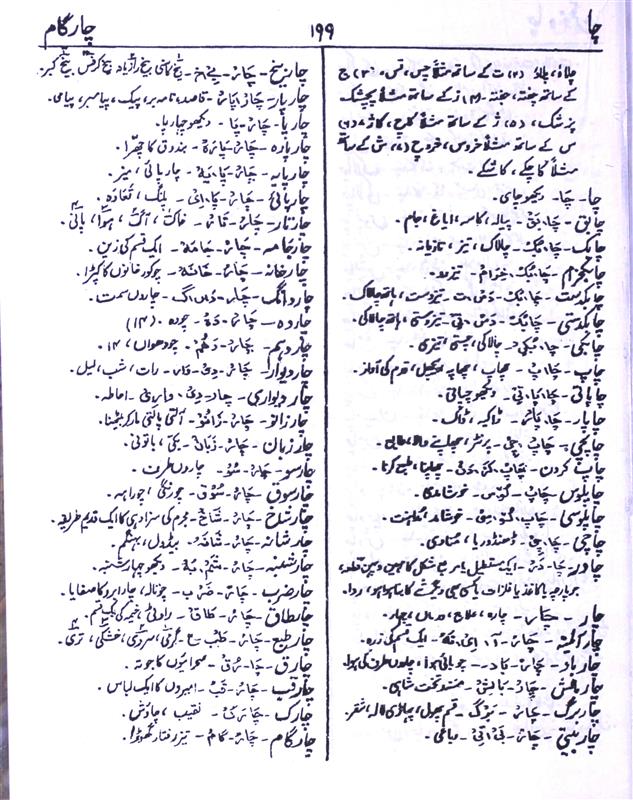 چا
۱۹۹
چارگام
چلاؤ، پلاؤ (۲) ت کے ساتھ مثلاً چیں، تیں، (۳) ج
کے ساتھ جفتہ، جفتہ۔ (۴) ز کے ساتھ مثلاً پچشک
پزشک، (۵) ژ کے ساتھ مثلاً کاج، کاژ، (۶)
س کے ساتھ مثلاً خروس، خروچ (۷) ش کے ساتھ
مثلاً کاچکے، کاشکے۔
چا۔ چَا۔ دیکھو چای۔
چابق۔ پیالہ، کاسہ، ایاغ، جام۔
چابک۔ چَا۔بُک۔ چالاک، تیز، تازیانہ۔
چابکخرام۔ چَا۔بُک۔خِرَام۔ تیزرو۔
چابکدست۔ چَا۔بُک۔دَسْ۔ت۔ تیزدست، ہاتھ چالاک۔
چابکدستی۔ چَابُک۔دَسْ۔تی۔ تیزدستی، ہاتھ چالاکی۔
چابکی۔ چا۔بُکی۔ چالاکی، چستی، تیزی۔
چاپ۔ چَاپ۔ چھاپ، چھاپہ، قدم کی آواز۔
چاپاتی۔ چَا۔پَا۔تِی۔ دیکھو چپاتی۔
چاپار۔ چَا۔پَار۔ ڈاکیہ، ڈاک۔
چاپچی۔ چَاپ۔چِی۔ پرنٹر، چھاپنے والا، طابع۔
چاپ کردن۔ چَاپ۔کَر۔دَن۔ چھاپنا، طبع کرنا۔
چاپلوس۔ چَاپ۔لُوس۔ خوشامدی۔
چاپلوسی۔ چَاپ۔لُو۔سِی۔ خوشامد،
چاچی۔ چَا۔چِی۔ ڈھنڈورہا، منادی۔
چادر۔ چَا۔دَر۔ ایک مستطیل یا مربع شکل کا
پارچہ یا کاغذ یا فلزات یا کسی چیز کا بنا ہوا ہو، ردا۔
چار۔ چَار۔ چارہ، علاج، درماں، چہار۔
چارآئینہ۔ چَار۔آ۔ای۔نَہ۔ ایک قسم کی زرہ۔
چارباد۔ چَار۔بَاد۔ چوبائی ہوا، چاروں طرف کی ہوا۔
چاربالش۔ چَار۔بَالِش۔ مسند، تخت شاہی۔
چاربرگ۔ چَار۔بَرْگ۔ قسم پھول، پہاڑی لالہ، شقر۔
چاربیتی۔ چَار۔بَی۔تِی۔ رباعی۔
چاربیخ۔ چَار۔بے۔خ۔ بیخ کاسنی، بیخ رازیانہ، بیخ کرفس، بیخ کبر۔
چارپار۔ چَار۔پَار۔ قاصد، نامہ بر، پیک، پیامبر، پیامی۔
چارپا۔ چَار۔پَا۔ دیکھو چارپا۔
چارپارہ۔ چَار۔پَارَہ۔ بندوق کا چھرّا۔
چارپایہ۔ چَار۔پَا۔یَہ۔ چارپائی، میز۔
چارپائی۔ چَار۔پَا۔ای۔ پلنگ،
چارتار۔ چَار۔تَار۔ خاک، آگ، ہوا، پانی۔
چارجامہ۔ چَار۔جَامَہ۔ ایک قسم کی زین۔
چارخانہ۔ چَار۔خَانَہ۔ چوکور خانوں کا کپڑا۔
چاردانگ۔ چَار۔دَاں۔گ۔ چاروں سمت۔
چاردہ۔ چَار۔دَہ۔ چودہ۔ (۱۴)
چاردہم۔ چَار۔دَہُم۔ چودھواں، ۱۴۔
چاردیوار۔ چَار۔دِی۔وَار۔ رات، شب، لیل۔
چاردیواری۔ چَار۔دِی۔وَارِی۔ احاطہ۔
چارزانو۔ چَار۔زَانُو۔ آلتی پالتی مار کر بیٹھنا۔
چارزبان۔ چَار۔زَبَان۔ بکّی، باتونی۔
چارسو۔ چَار۔سُو۔ چاروں طرف۔
چارسوق۔ چَار۔سُوق۔ چورنگی، چوراہہ۔
چارشاخ۔ چَار۔شَاخ۔ مجرم کی سزا دہی کا ایک قدیم طریقہ۔
چارشانہ۔ چَار۔شَانَہ۔ بیڈول، بھنگم۔
چارشنبہ۔ چَار۔شَنْبَہ۔ دیکھو چہارشنبہ۔
چارضرب۔ چَار۔ضَرْب۔ چونالہ، چار ابرو کا صفایا۔
چارطاق۔ چَار۔طَاق۔ راوٹی، خیمہ کی ایک قسم۔
چارطبع۔ چَار۔طَبْ۔ع۔ گرمی، سردی، خشکی، تری۔
چارق۔ چَا۔رُق۔ صحرائیوں کا جوتہ۔
چارقب۔ چَار۔قَب۔ امیروں کا ایک لباس۔
چارک۔ چَارَک۔ نقیب، چاؤش۔
چارگام۔ چَار۔گَام۔ تیز رفتار گھوڑا۔